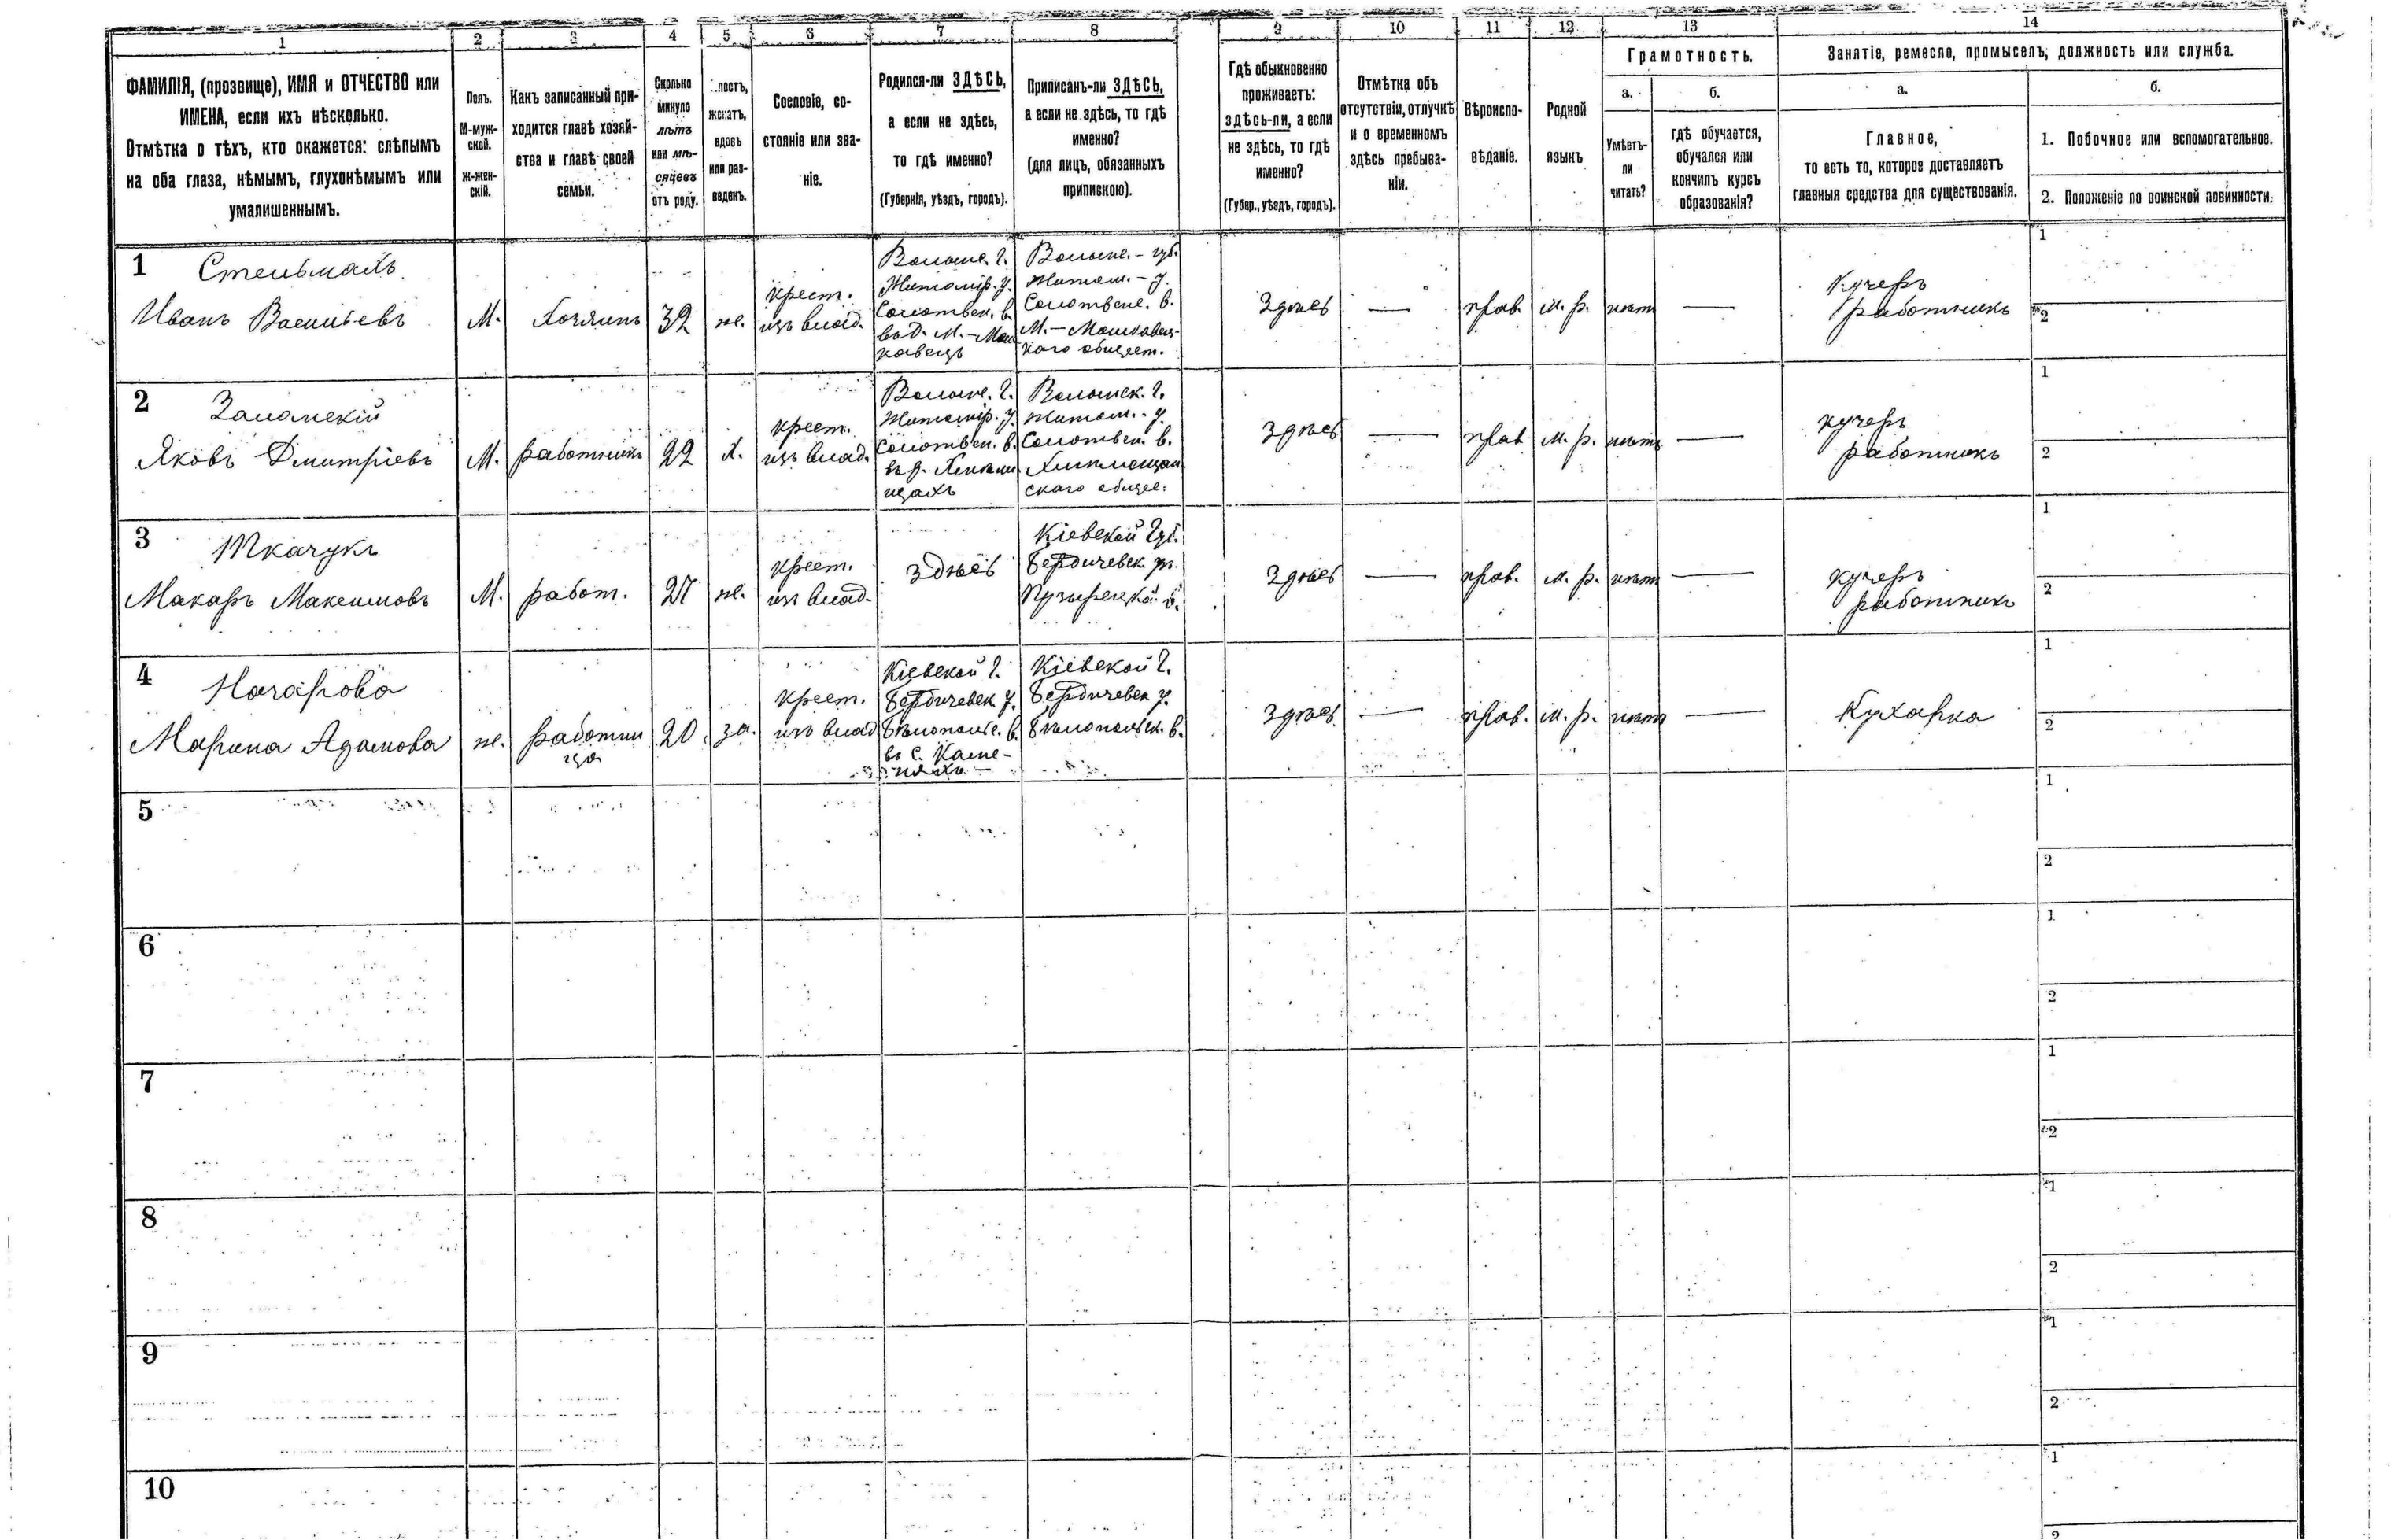 1 2 3 4 5 6 7 8 9 10 11 12 13 14
ФАМИЛІЯ, (прозвище), ИМЯ и ОТЧЕСТВО или
ИМЕНА, если ихъ нѣсколько.
Отмѣтка о тѣхъ, кто окажется: слѣпымъ
на оба глаза, нѣмымъ, глухонѣмымъ или
умалишеннымъ.
Полъ.
М-муж-
ской.
ж-жен-
скій.
Какъ записанный при-
ходится главѣ хозяй-
ства и главѣ своей
семьи.
Сколько
минуло
лѣтъ
или мѣ-
сяцевъ
отъ роду.
женатъ,
вдовъ
или раз-
веденъ.
Сословіе, со-
стояніе или зва-
ніе.
Родился-ли ЗДѢСЬ,
а если не здѣсь,
то гдѣ именно?
(Губернія, уѣздъ, городъ).
Приписанъ-ли ЗДѢСЬ,
а если не здѣсь, то гдѣ
именно?
(для лицъ, обязанныхъ
припискою).
Гдѣ обыкновенно
проживаетъ:
здѣсь-ли, а если
не здѣсь, то гдѣ
именно?
(Губер., уѣздъ, городъ).
Отмѣтка объ
отсутствіи, отлучкѣ
и о временномъ
здѣсь пребыва-
ніи.
Вѣроиспо-
вѣданіе.
Родной
языкъ
Грамотность.
а.
Умѣетъ-
ли
читать?
б.
гдѣ обучается,
обучался или
кончилъ курсъ
образованія?
Занятіе, ремесло, промыселъ, должность или служба.
а.
Главное,
то есть то, которое доставляетъ
главныя средства для существованія.
б.
1. Побочное или вспомогательное.
2. Положеніе по воинской повинности.
1 Стельмахъ
Иванъ Васильевъ
М.
Хозяинъ
32
ж.
крест.
изъ влад.
Волынс. г.
Житомір. у.
Солотвен. в.
въ д. М.-Мош
ковецъ
Волынс. - губ.
Житом. - у.
Солотвенс. в.
М. - Мошковец-
каго общест.
Здѣсь
—
прав.
м. р.
нѣтъ
—
Кучеръ
работникъ
1
2
2
Яковъ Дмитріевъ
М.
работникъ
22
х.
крест.
изъ влад.
Волынс. г.
Житомір. у.
Солотвен. в.
въ д.
щахъ
Волынск. г.
Житом. - у.
Солотвен. в.
скаго общес.
здѣсь
—
прав
м. р.
нѣтъ
—
кучеръ
работникъ
1
2
3 Ткачукъ
Макаръ Максимовъ
М.
работ.
27
ж.
крест.
изъ влад.
здѣсь
Кіевской Губ.
Бердичевск. у.
здѣсь
—
прав.
м. р.
нѣтъ
—
кучеръ
работникъ
1
2
4
Марина Адамова
ж.
работни
ца
20
за.
крест.
изъ влад
Кіевской г.
Бердичевск у.
Бѣлопольс. в.
въ с.
Кіевской г.
Бердичевск у.
Бѣлопольск. в.
здѣсь
—
прав.
м. р.
нѣтъ
—
Кухарка
1
2
5
1
2
6
1
2
7
1
2
8
1
2
9
1
2
10
1
2